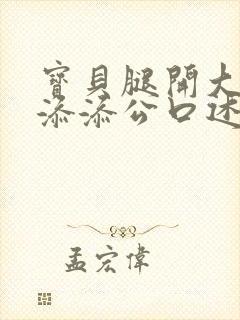 寶貝腿開大
添添公口述
孟宏偉